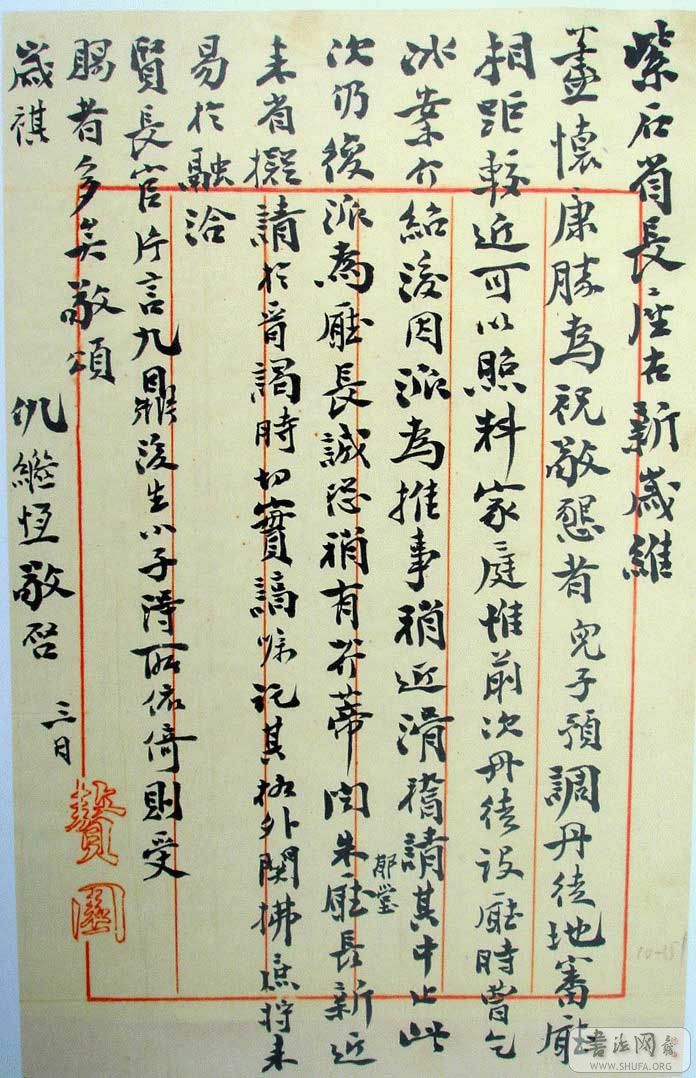 紫石省長座右新歲維
藎懷康勝為祝敬懇者兒子預調丹徒地審廳
相距較近可以照料家庭惟前次丹徒設廳時曾乞
冰案介紹後因派為推事稍近滑稽請其中止此
次仍復派為廳長誠恐稍有芥蒂聞朱廳長新近
郙堂
來省擬請於晉謁時切實譎嘱託其格外關拂庶將來
易於融洽
賢長官片言九鼎後生小子得所依倚則受
賜者多矣敬頌
歲祺
仇繼恆敬啓 三日
贊園
書法网
WWW.SHUFA.ORG